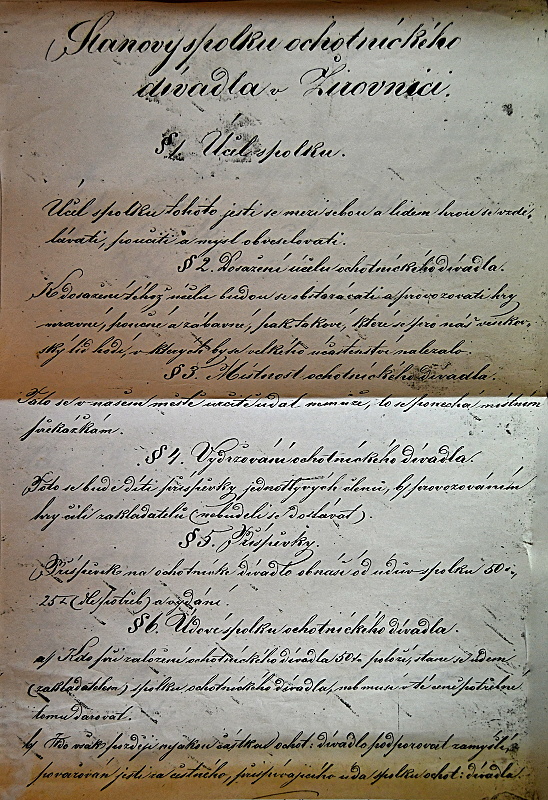 Stanovy spolku ochotnického
divadla v Žirovnici.
§ 1. Účel spolku.
Účel spolku tohoto jesti se mezi sebou a lidem hrou se vzdě-
lávati, poučiti a mysl obveselovati.
§ 2. Dosažení účelu ochotnického divadla.
K dosažení téhož účelu budou se obstarávati a provozovati hry
mravné, poučné a zábavné, pak takové, které se pro náš venkov-
ský lid hodí, v kterých by se velkého účastenství nalezalo.
§ 3. Místnost ochotnického divadla.
Tato se v našem městě určitě udat nemůže, to se ponechá místním
překážkám.
§ 4. Vydržování ochotnického divadla.
Toto se bude díti příspěvky jednotlivých členů, b) provozováním
hry čili zakladatelů (nebudeli se dostávat).
§ 5. Příspěvky.
Příspěvek na ochotnické divadlo obnáší od údův spolku 50
25 (dle potřeb) a vydání.
§ 6. Údové spolku ochotnického divadla.
a) Kdo při založení ochotnického divadla 50 položí, stane se údem
(zakladatelem) spolku ochotnického divadla, neb musí v té ceně potřebné
tomu darovat.
b) Kdo však později nějakou částkou ochot: divadlo podporovat zamýšlí,
považován jesti za čestného, přispívajícího úda spolku ochot: divadla.